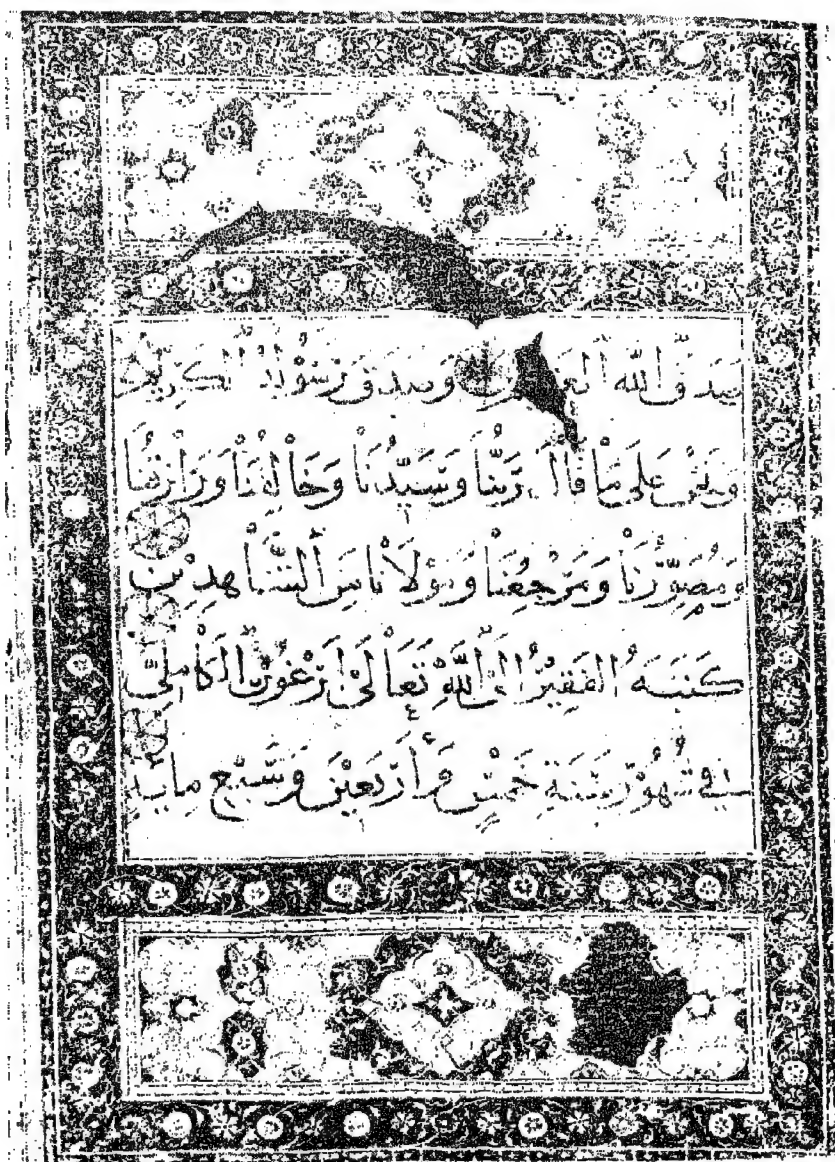 صَدَقَ اللّٰه العَظِيم وَصَدَقَ رَسُوْلُهُ الْكَرِيْمُ
وَنَحْنُ عَلَى مَا قَالَ رَبُّنَا وَسَيِّدُنَا وَخَالِقُنَا وَرَازِقُنَا
وَمُصَوِّرُنَا وَمَرْجِعُنَا وَمَوْلَانَا مِنَ الشَّاهِدِيْنَ
كَتَبَهُ الفَقِيْرُ اِلَى اللّٰهِ تَعَالَى اَرْغُوْن الكَامِلِيّ
فِي شُهُوْرِ سَنَةِ خَمْسٍ وَأَرْبَعِيْنَ وَسَبْعِ مِائَةٍ